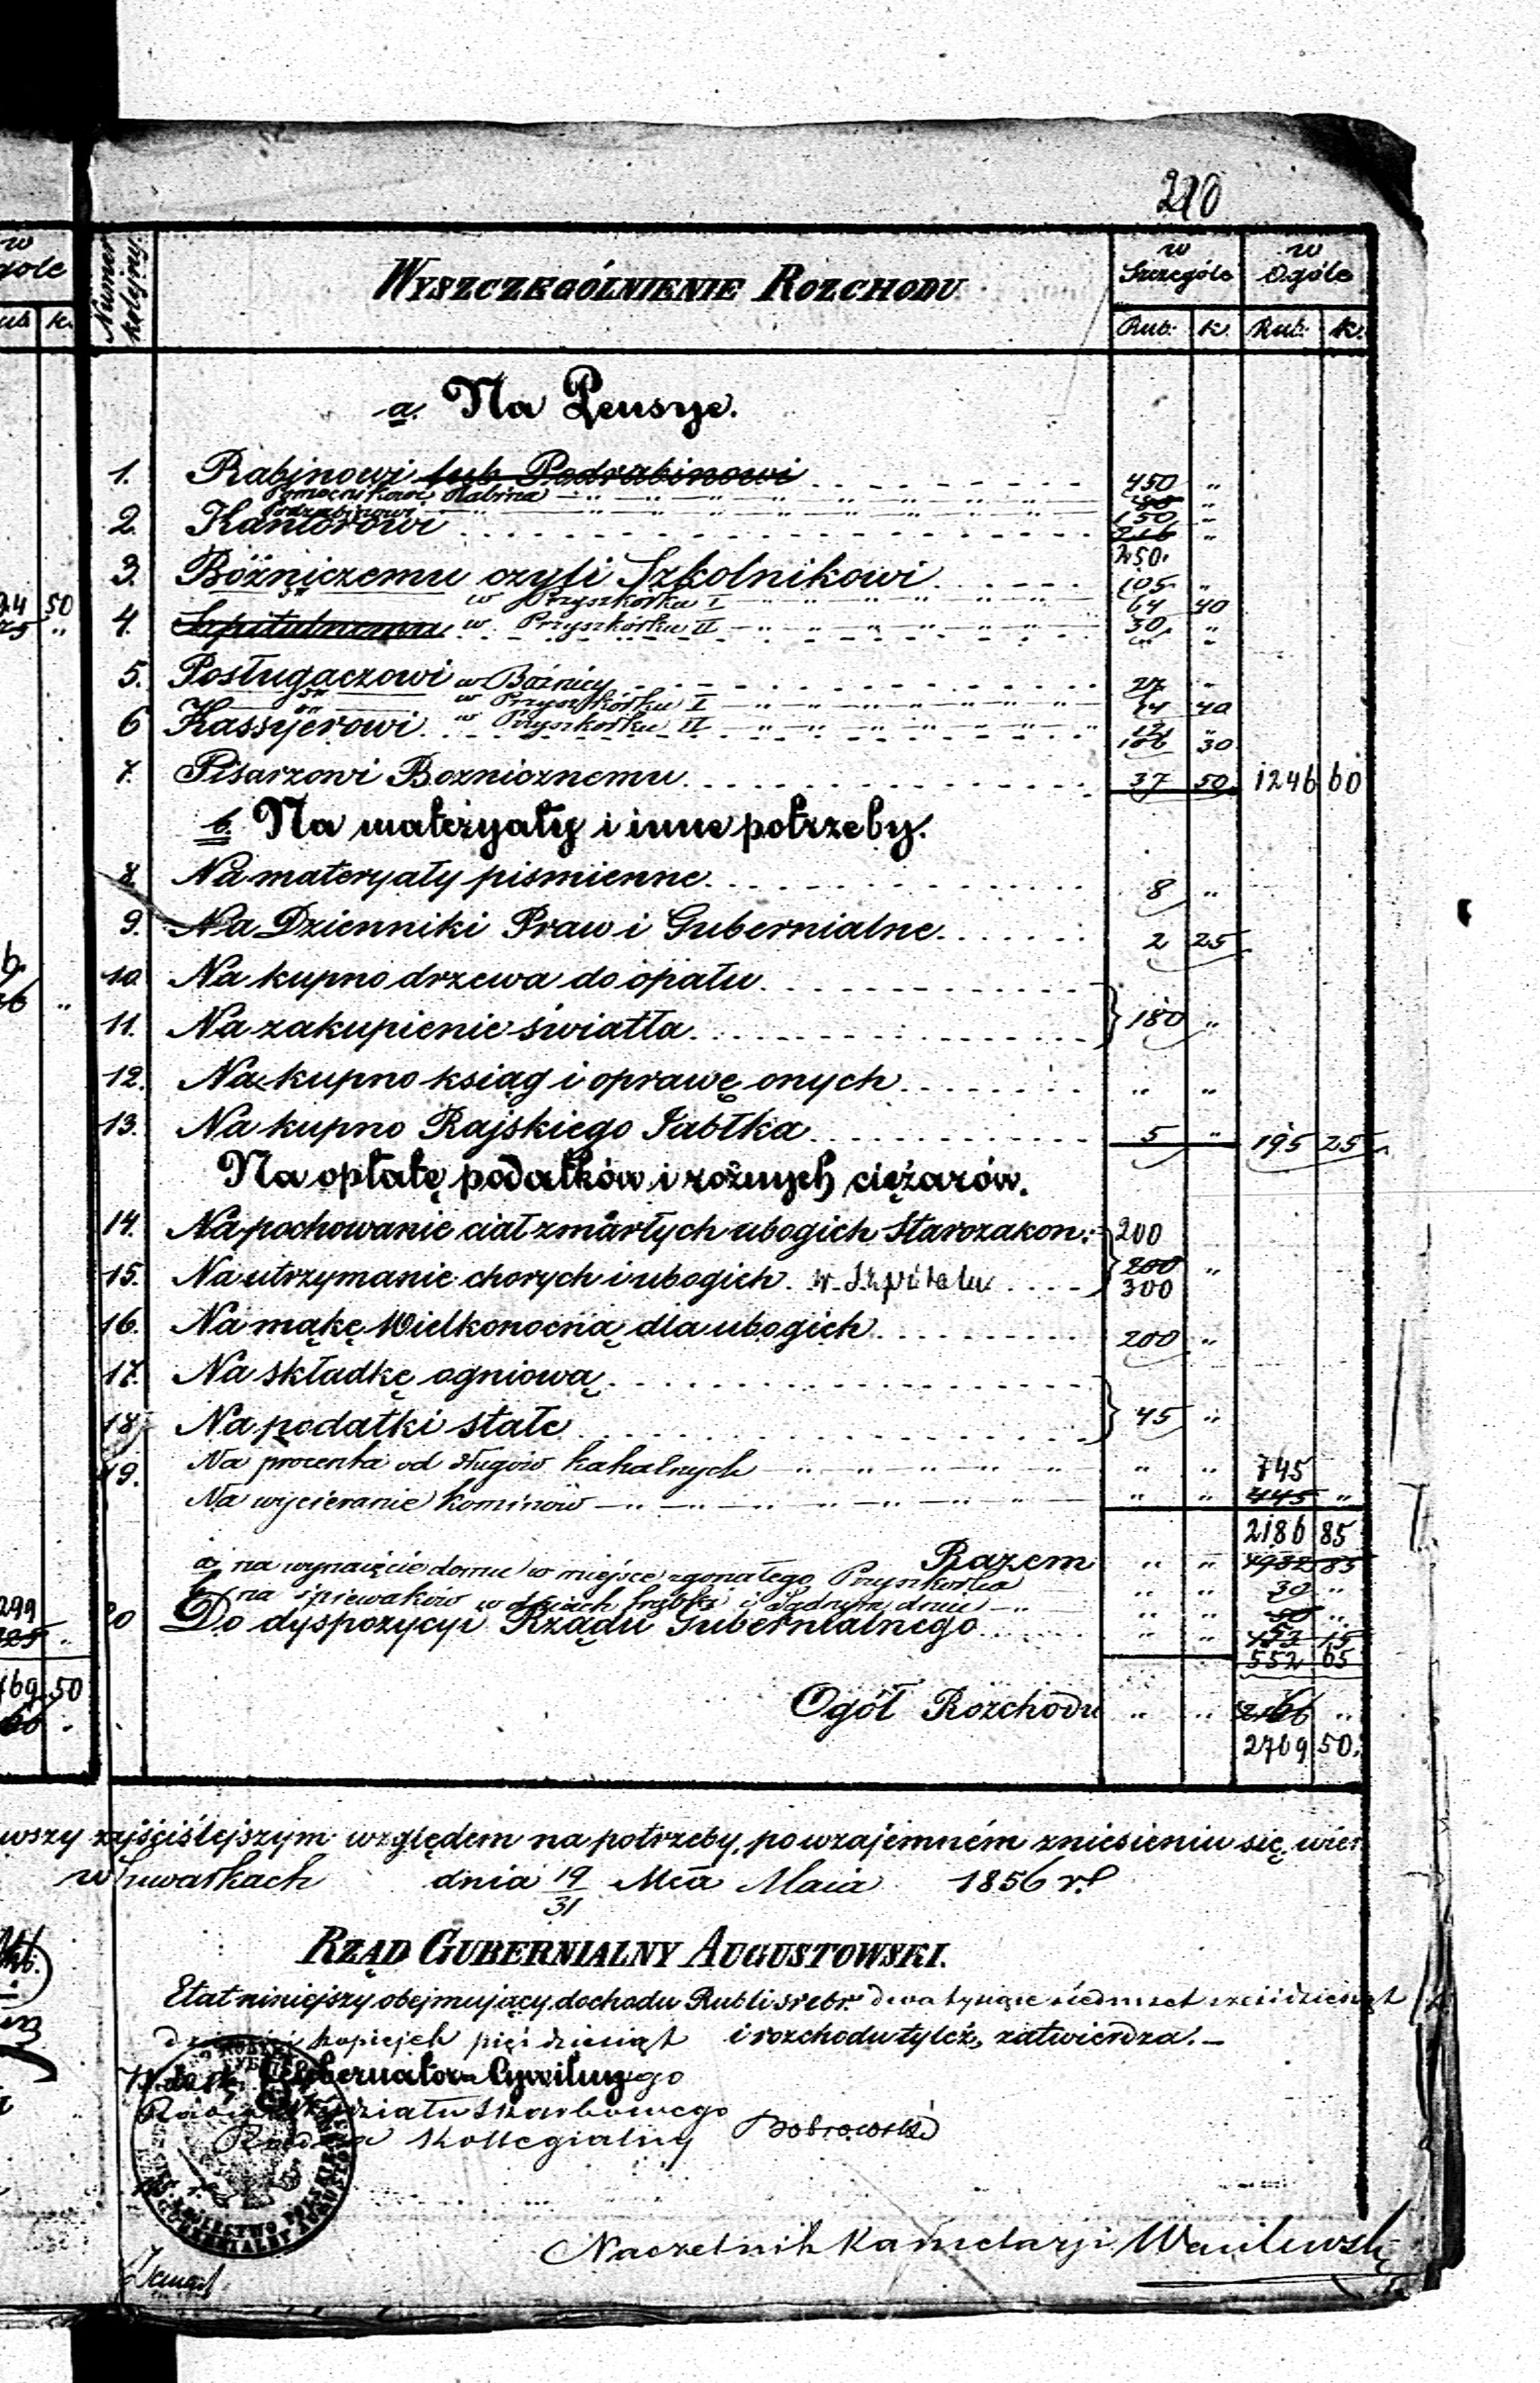 210
w
Szczególe
w
Ogóle
Numer
kolejny.
WYSZCZEGÓLNIENIE ROZCHODU
Rub: k. Rub: k.
a. Na Pensye.
1. Rabinowi lub Podrabinowi 450 "
Pomocnikowi Rabina "
Podrabinowi 150 "
2. Kantorowi "
250.
3. Bóżniczemu czyli Szkolnikowi 105 "
w Przyszkółku I 64 40
4. Szpitalnemu w Przyszkółku II 30 "
5. Posługaczowi w Bóźnicy 27 "
w Przyszkółku I 40
6 Kassyerowi w Przyszkółku II
106 30
7. Pisarzowi Boznicznemu 37 50 1246 60
b. Na materyały i inne potrzeby.
8. Na materyały pismienne 8 "
9. Na Dzienniki Praw i Gubernialne 2 25
10. Na kupno drzewa do opału
11. Na zakupienie światła } 180 "
12. Na kupno ksiąg i oprawę onych " "
13. Na kupno Rajskiego Jabłka 5 " 195 25
Na opłatę podatków i rożnych ciężarów.
14. Na pochowanie ciał zmarłych ubogich Starozakon: 200
200 "
15. Na utrzymanie chorych i ubogich w Szpitalu 300
16. Na mąkę Wielkonocną dla ubogich 200 "
17. Na składkę ogniową
18. Na podatki stałe } 45 "
19. Na procenta od długów kahalnych " " 745
Na wycieranie kominów " " 445 "
2186 85
Razem " " 85
a, na wynajęcie domu w miejsce zgorzałego Przyszkółka " " 30 "
b, na śpiewaków w dniach i Sądnym dniu " " 50 "
20 Do dyspozycyi Rządu Gubernialnego " " 15
552 65
Ogół Rozchodu " " "
2769 50.
wszy zajściślejszym względem na potrzeby, po wzajemném zniesieniu się, wier
w Suwałkach dnia 19/31 Mca Maia 1856 r.
RZĄD GUBERNIALNY AUGUSTOWSKI.
Etat niniejszy obejmujący dochodu Rubli srebr. dwa tysiące siedmset sześćdziesiąt
kopiejek pięćdziesiąt i rozchodu tyleż, zatwierdza.
Gubernatora Cywilnego
Wydziału Skarbowego
Radca Kollegialny Bobrowski
Naczelnik Kancelaryi